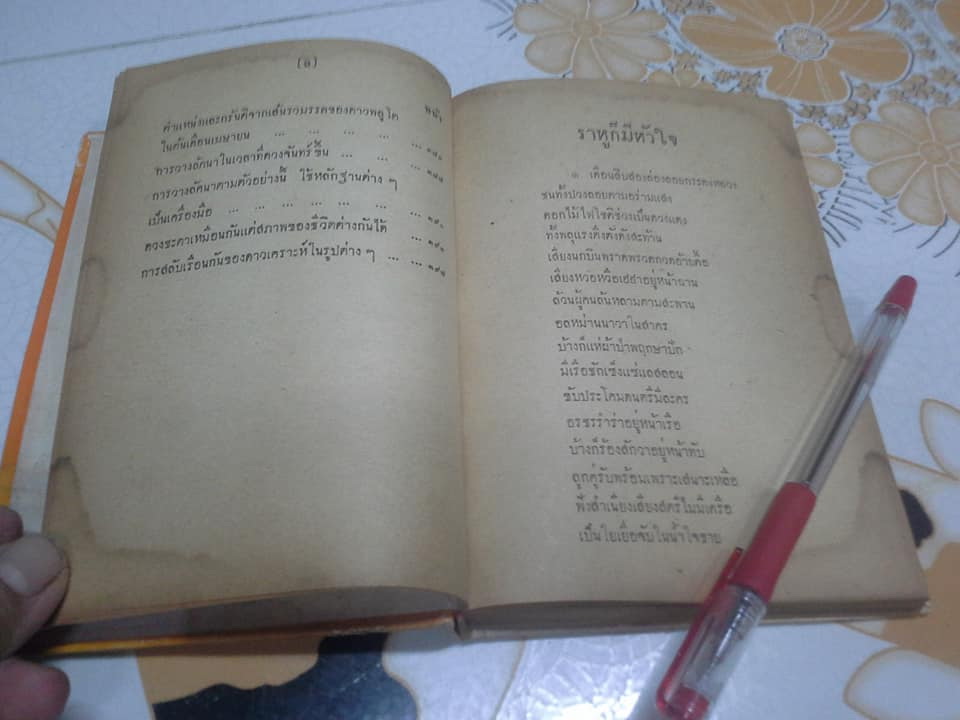 (๑)
หน้า
ตำแหน่งและกรันติจากเส้นรวมรรคของดาวพลูโต
ในต้นเดือนเมษายน ... ... ... ... ...
การวางลัคนาในเวลาที่ดวงจันทร์ขึ้น ... ...
การวางลัคนาตามตัวอย่างนี้ ใช้หลักฐานต่าง ๆ
เป็นเครื่องมือ ... ... ... ... ... ...
ดวงชะตาเหมือนกันแต่สภาพของชีวิตต่างกันได้ ...
การสลับเรือนกันของดาวเคราะห์ในรูปต่าง ๆ ... ...
ราหูก็มีหัวใจ
๑ เดือนสิบสองล่องลอยกระทงหลวง
ชนทั้งปวงลอยตามอร่ามแสง
ดอกไม้ไฟโชติช่วงเป็นดวงแดง
ทั้งพลุแรงตึงตังดังสะท้าน
เสียงนกบินพราดพรวดกวดอ้ายตื้อ
เสียงหวอหวือเฮฮาอยู่หน้าฉาน
ล้วนผู้คนล้นหลามตามสะพาน
อลหม่านนาวาในสาคร
บ้างก็แห่ผ้าป่าพฤกษาปัก
มีเรือชักเซ็งแซ่แลสลอน
ขับประโคมดนตรีมีละคร
อรชรรำร่าอยู่หน้าเรือ
บ้างก็ร้องสักวาอยู่หน้าทับ
ลูกคู่รับพร้อมเพราะเสนาะเหลือ
ฟังสำเนียงเสียงสตรีไม่มีเครือ
เป็นใยเยื่อจับในน้ำใจชาย